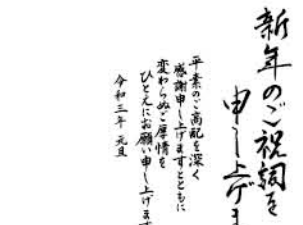 新年のご祝詞を
申し上げま
平素のご高配を深く
感謝申し上げますとともに
変わらぬご厚情を
ひとえにお願い申し上げます
令和三年 元旦